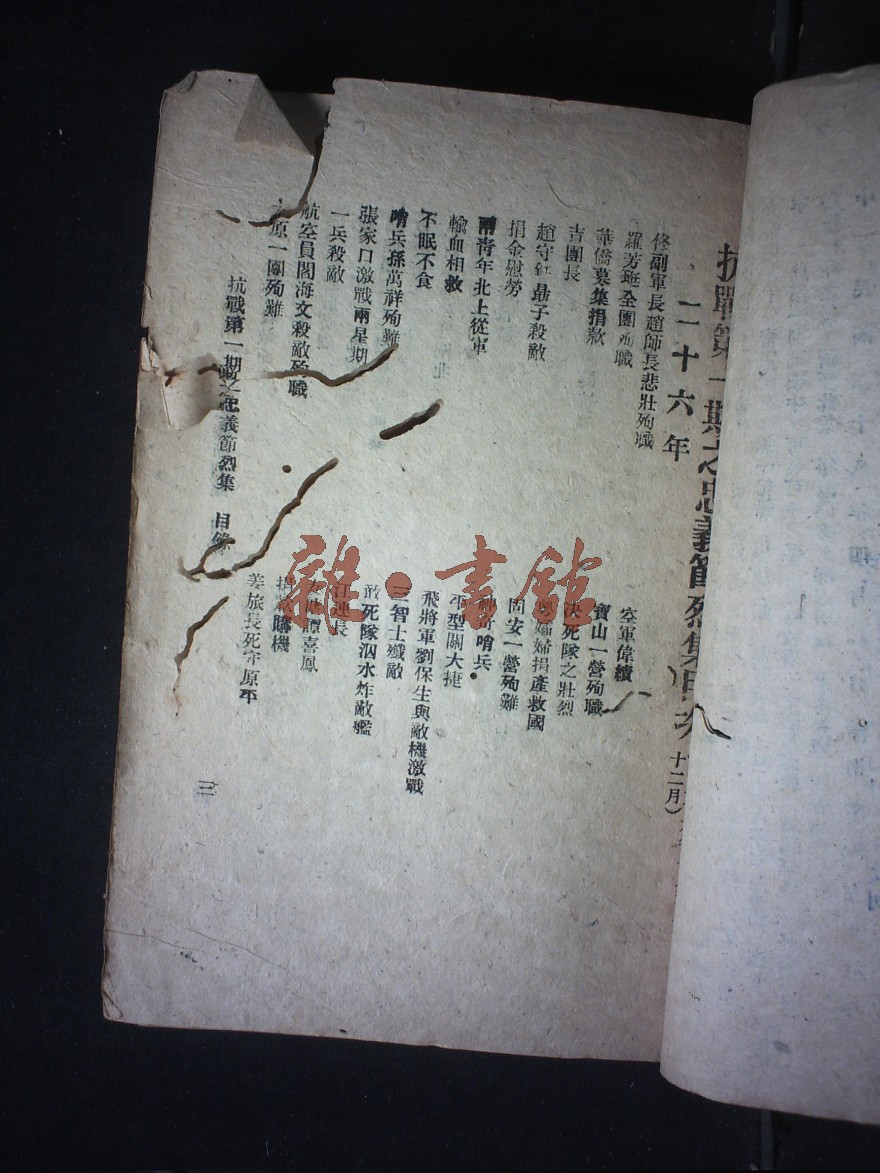 抗戰第一期之忠義節烈集目次
十二月)
二十六年
佟副軍長趙師長悲壯殉職
羅芳珪全團殉職
華僑募集捐款
吉團長
趙守 鼎子殺敵
捐金慰勞
兩青年北上從軍
輸血相救
不眠不食
哨兵孫萬祥殉難
張家口激戰兩星期
一兵殺敵
航空員閻海文殺敵殉職
原一團殉難
空軍偉績
寶山一營殉職
決死隊之壯烈
婦捐產救國
固安一營殉難
哨兵
平型關大捷
飛將軍劉保生與敵機激戰
三智士殲敵
敢死隊泅水炸敵艦
江連長
譚喜鳳
捐款購機
姜旅長死守原平
抗戰第一期之忠義節烈集 目錄
三
雜·書館